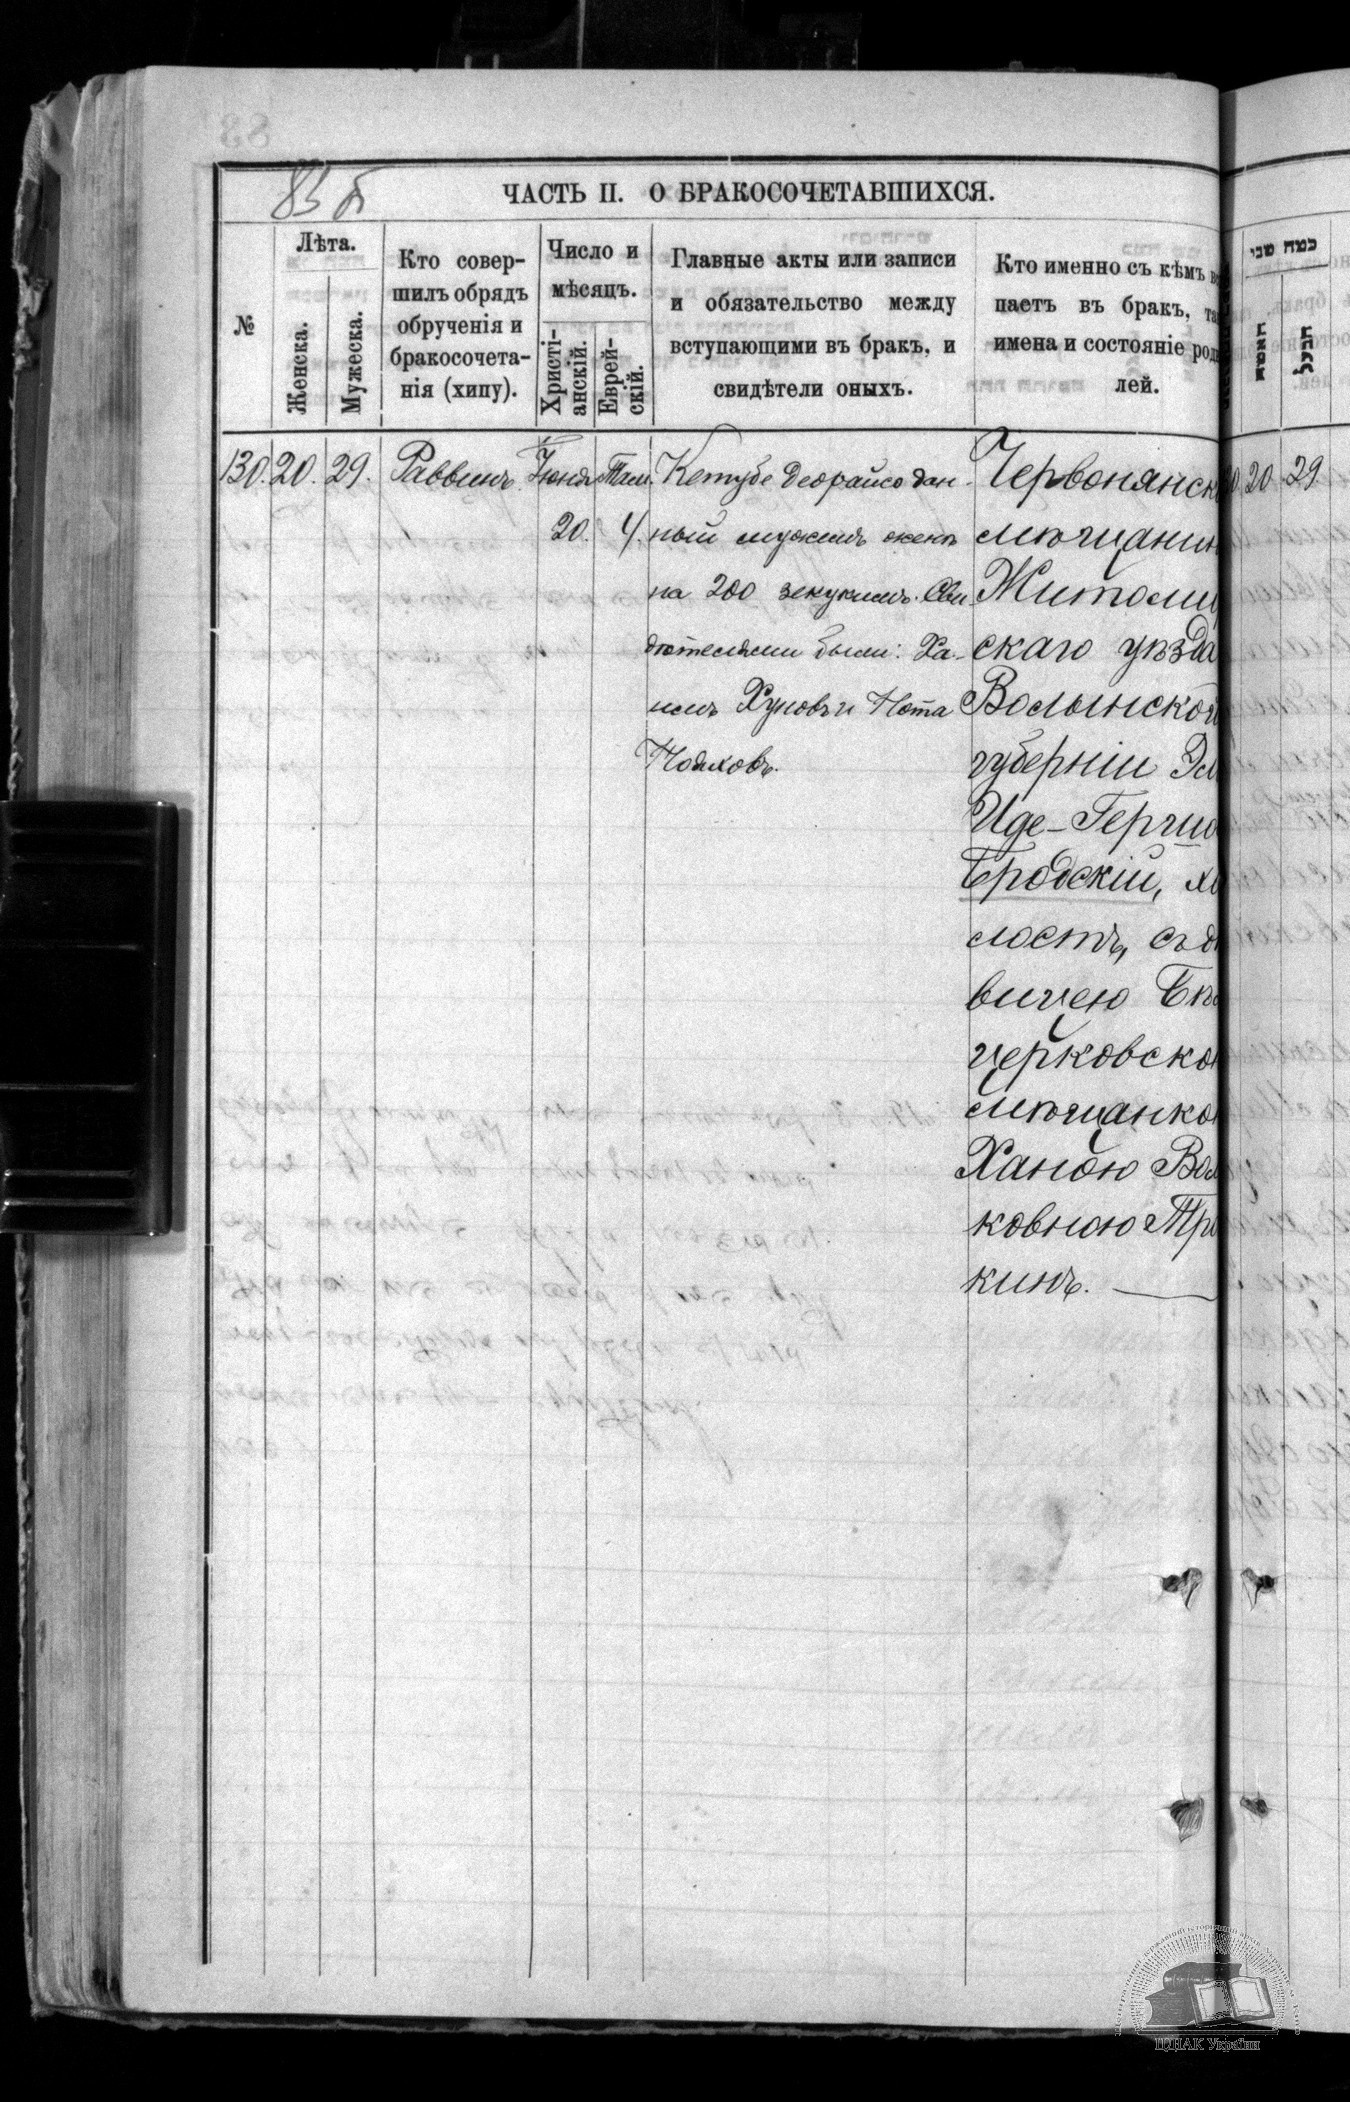 83 б
ЧАСТЬ II. О БРАКОСОЧЕТАВШИХСЯ.
№
Лѣта.
Женска.
Мужеска.
Кто совер-
шилъ обрядъ
обрученія и
бракосочета-
нія (хипу).
Число и
мѣсяцъ.
Христі-
анскій.
Еврей-
скій.
Главные акты или записи
и обязательство между
вступающими въ бракъ, и
свидѣтели оныхъ.
Кто именно съ кѣмъ в
паетъ въ бракъ, та
имена и состояніе роди
лей.
כמה שני
האשה
הבעל
130. 20. 29. Раввинъ. Іюня 20. Там. 4.
Кетубе деорайсо дан-
ный мужемъ женѣ
на 200 зекукимъ. Сви-
дѣтелями были: Ха-
имъ Хуновъ и Нота
Червонянск
мѣщанин
Житомир
скаго уѣзда
Волынской
губерніи Эл
Иде-Герш
Бродскій, хо
лостъ, съ дѣ
вицею Бѣл
церковско
мѣщанко
Ханою Вол
ковною Тро
кинъ.
20 29.
ЦДІАК України